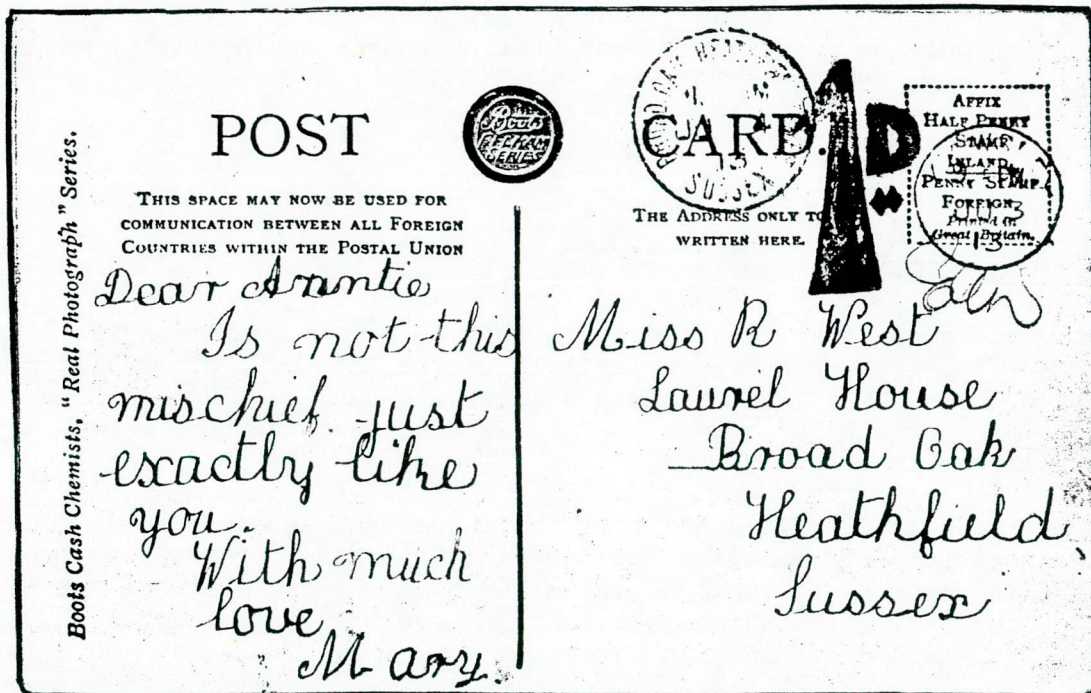 Boots Cash Chemists, "Real Photograph" Series.
POST CARD.
Boots
PELHAM
SERIES
THIS SPACE MAY NOW BE USED FOR
COMMUNICATION BETWEEN ALL FOREIGN
COUNTRIES WITHIN THE POSTAL UNION
THE ADDRESS ONLY TO
WRITTEN HERE.
BROAD OAK HEATHFIELD
13
SUSSEX
1D
AFFIX
HALF PENNY
STAMP
INLAND
PENNY STAMP
FOREIGN
Printed in
Great Britain.
13
Dear Auntie
Is not this
mischief just
exactly like
you.
With much
love
Mary.
Miss R West
Laurel House
Broad Oak
Heathfield
Sussex